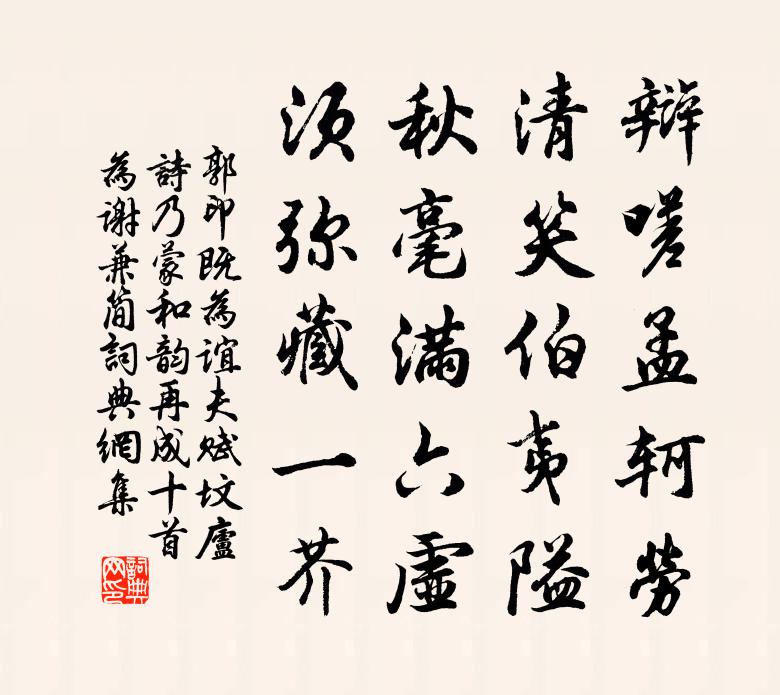 辯嗟孟軻勞
清笑伯夷隘
秋毫滿六虛
須弥藏一芥
郭印既為誼夫賦墳廬
詩乃蒙和韵再成十首
為谢兼简詞典網集
詞典网印